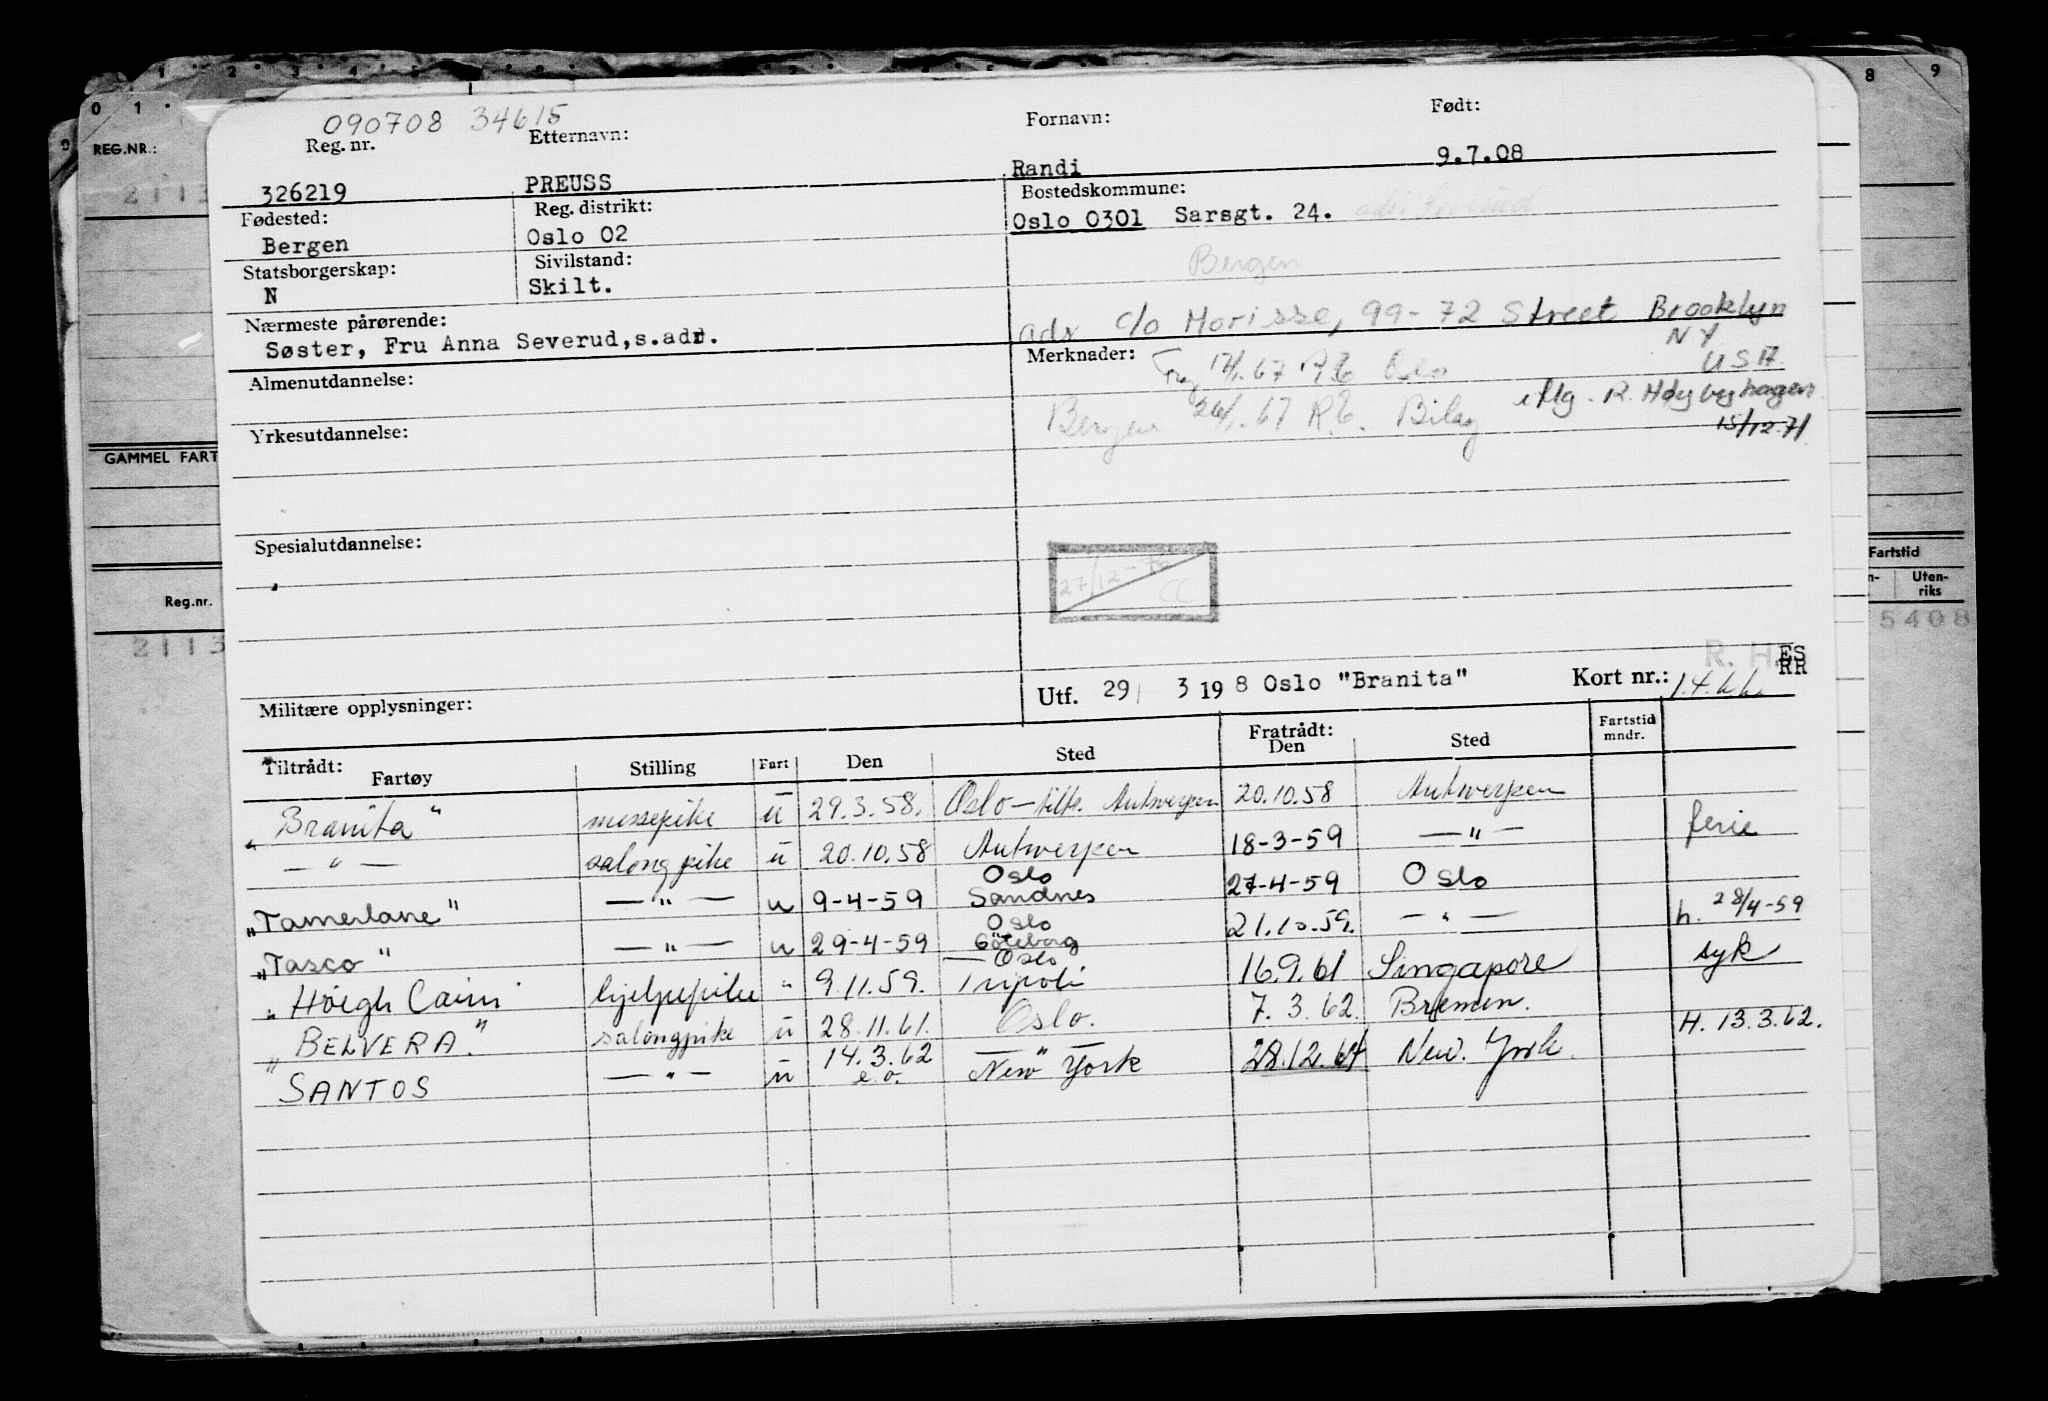 0 1 2 3 4 8 9
REG.NR.:
2113
GAMMEL FART
Reg.nr.
2113
Fartstid
Uten-
riks
5408
090708 34615
Reg. nr. Etternavn: Fornavn: Født:
326219 PREUSS Randi 9.7.08
Fødested: Reg. distrikt: Bostedskommune:
Bergen Oslo 02 Oslo 0301 Sarsgt. 24.
Statsborgerskap: Sivilstand: Bergen
N Skilt.
Nærmeste pårørende: adr c/o Morisse, 99-72 Street Brooklyn
NY
USA
Søster, Fru Anna Severud,s.adr.
Almenutdannelse: Merknader: 12/1.67 R.E Oslo
iflg. R. Høybyhagen
15/12-71
Bergen 26/1.67 R.E. Bilag
Yrkesutdannelse:
Spesialutdannelse:
27/12-72
CC
Militære opplysninger:
Utf. 29/ 3 1958 Oslo "Branita" Kort nr.: 1.4.66
R. H. ES
RR
Tiltrådt: Fratrådt: Fartstid
mndr.
Fartøy Stilling Fart Den Sted Den Sted
"Branita" messepike u 29.3.58. Oslo - tiltr. Antwerpen 20.10.58 Antwerpen
— " — salongpike u 20.10.58 Antwerpen 18-3-59 — " — ferie
"Tamerlane" — " — u 9-4-59 Oslo Sandnes 27-4-59 Oslo
"Tasco" — " — u 29-4-59 Oslo Göteborg 21.10.59. — " — h. 28/4-59
"Höegh Cairn" hjelpepike " 9.11.59. Oslo Tripoli 16.9.61 Singapore syk
"BELVERA." salongpike u 28.11.61. Oslo. 7.3.62. Bremen.
SANTOS — " — u 14.3.62 e.o. — " — New York 28.12.67 New York H. 13.3.62.